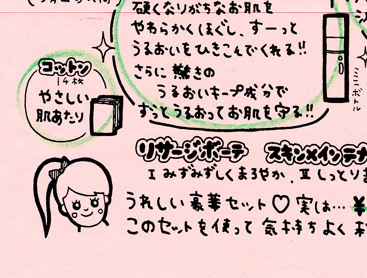 硬くなりがちなお肌を
やわらかくほぐし、すーっと
うるおいをひきこんでくれる!!
さらに 驚きの
うるおいキープ成分で
ずっとうるおってお肌を守る!!
コットン
14枚
やさしい
肌あたり
リサージ ボーテ スキン×インテ
I みずみずしくまろやか、II しっとり
うれしい豪華セット♡実は…¥
このセットを使って気持ちよく